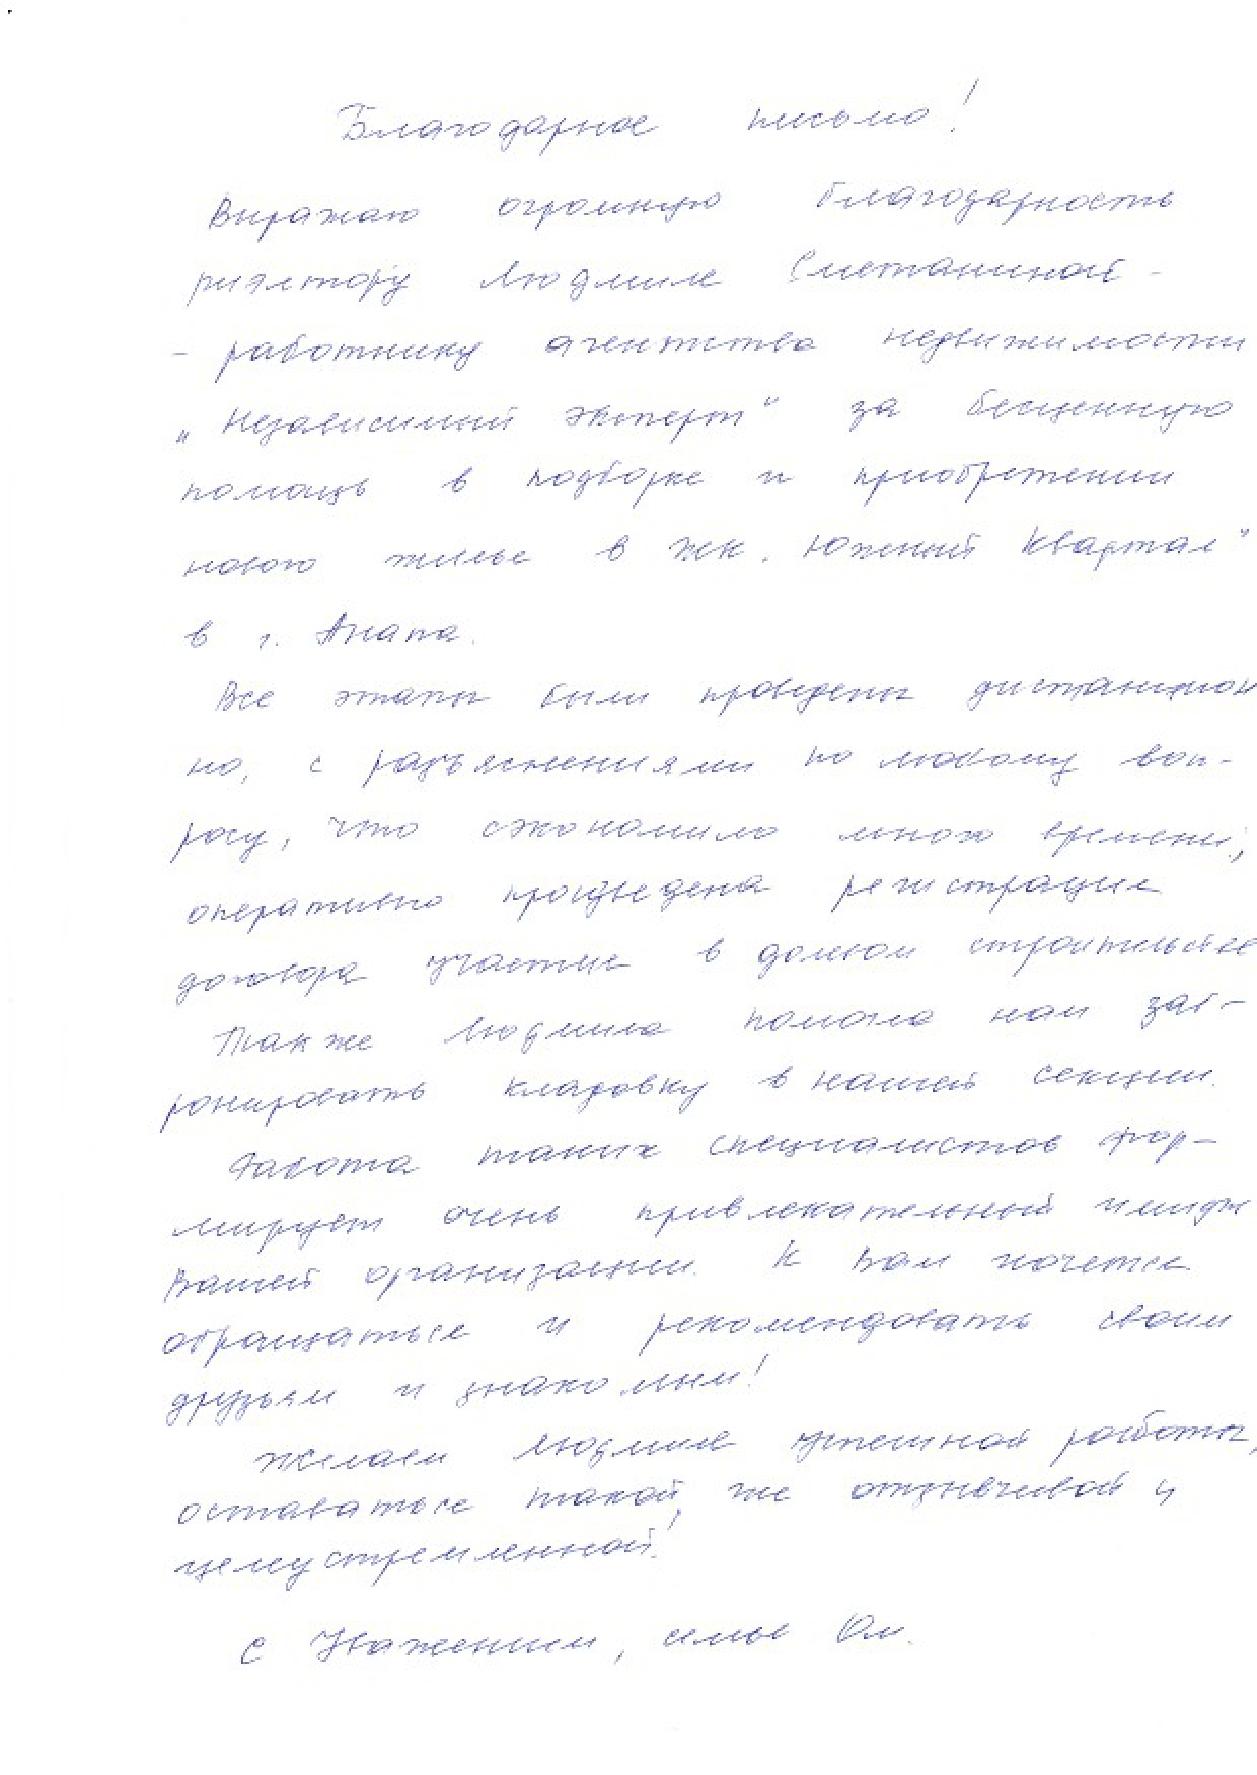 Благодарное письмо!
Выражаю огромную благодарность
риэлтору Людмиле Сметаниной -
- работнику агентства недвижимости
„Независимый эксперт" за бесценную
помощь в подборке и приобретении
нового жилья в ЖК „Южный Квартал"
в г. Анапа.
Все этапы были проведены дистанцион
но, с разъяснениями по любому воп-
росу, что сэкономило много времени,
оперативно произведена регистрация
договора участия в долевом строительстве
Также Людмила помогла нам заб-
ронировать кладовку в нашей секции.
Работа таких специалистов фор-
мирует очень привлекательный имидж
Вашей организации. К Вам хочется
обращаться и рекомендовать своим
друзьям и знакомым!
Желаем Людмиле успешной работы,
оставаться такой же отзывчивой и
целеустремленной!
С Уважением, семья Ом.